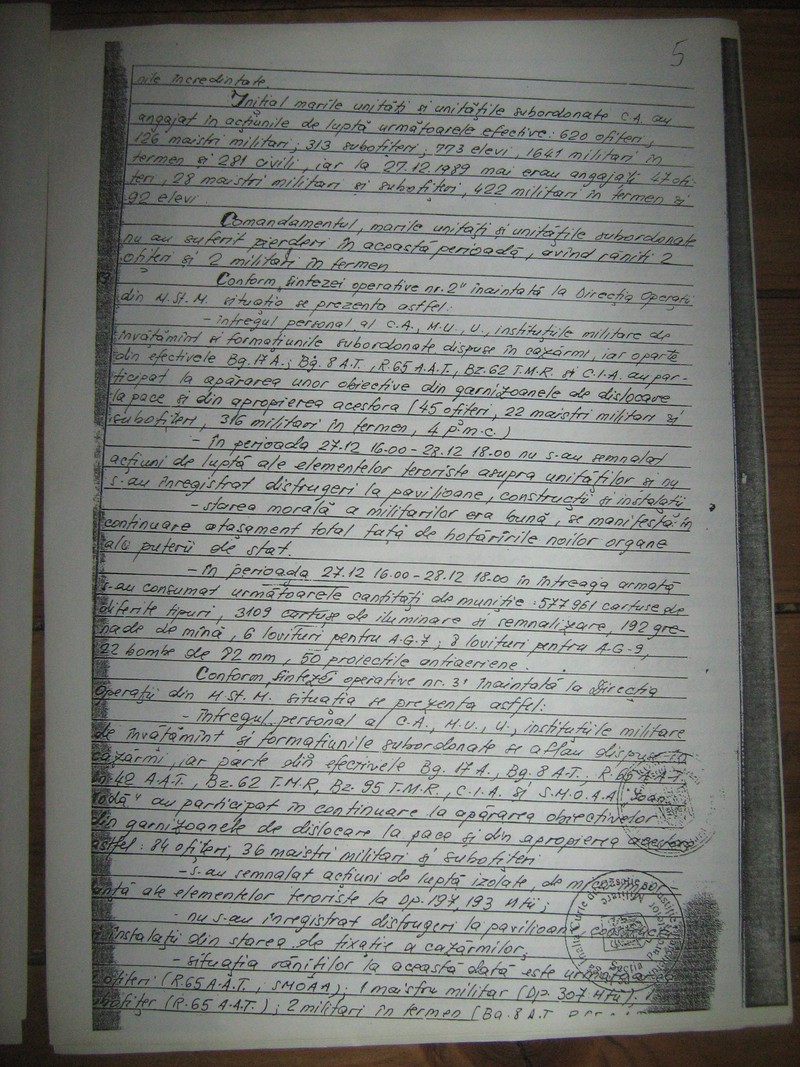 5
nile încredintate
Inițial marile unități și unitățile subordonate C.A. au
angajat în acțiunile de luptă următoarele efective: 620 ofițeri,
126 maiștri militari; 313 subofițeri; 773 elevi, 1641 militari în
termen și 281 civili, iar la 27.12.1989 mai erau angajați 47 ofi-
țeri, 28 maiștri militari și subofițeri, 422 militari în termen și
92 elevi
Comandamentul, marile unități și unitățile subordonate
nu au suferit pierderi în această perioadă, avînd răniți 2
ofițeri și 2 militari în termen
Conform „Sintezei operative nr. 2" înaintată la Direcția Operații
din M.St.M. situația se prezenta astfel:
- întregul personal al C.A., M.U., U., instituțiile militare de
învățămînt și formațiunile subordonate dispuse în cazărmi, iar o parte
din efectivele Bg. 17 A.; Bg. 8 A.T., R. 65 A.A.T., Bz. 62 T.M.R. și C.I.A. au par-
ticipat la apărarea unor obiective din garnizoanele de dislocare
la pace și din apropierea acestora (45 ofițeri, 22 maiștri militari și
subofițeri, 316 militari în termen, 4 p.m.c.)
- în perioada 27.12 16.00-28.12 18.00 nu s-au semnalat
acțiuni de luptă ale elementelor teroriste asupra unităților și nu
s-au înregistrat distrugeri la pavilioane, construcții și instalații
- starea morală a militarilor era bună, se manifestă în
continuare atașament total față de hotărîrile noilor organe
ale puterii de stat.
- în perioada 27.12 16.00-28.12 18.00 în întreaga armată
s-au consumat următoarele cantități de muniție: 577 961 cartușe de
diferite tipuri, 3109 cartușe de iluminare și semnalizare, 192 gre-
nade de mînă, 6 lovituri pentru A.G.7; 8 lovituri pentru A.G-9,
22 bombe de 82 mm, 50 proiectile antiaeriene.
Conform „Sintezei operative nr. 3" înaintată la Direcția
Operații din M.St.M. situația se prezenta astfel:
- întregul personal al C.A., M.U., U., instituțiile militare
de învățămînt și formațiunile subordonate se aflau dispuse în
cazărmi, iar parte din efectivele Bg. 17 A., Bg. 8 A.T., R. 65 A.A.T.
42 A.A.T., Bz. 62 T.M.R, Bz. 95 T.M.R., C.I.A. și S.M.O.A.A. „Ioan
Vodă" au participat în continuare la apărarea obiectivelor
din garnizoanele de dislocare la pace și din apropierea acestora
astfel: 84 ofițeri, 36 maiștri militari și subofițeri
- s-au semnalat acțiuni de luptă izolate, de mică impor-
tanță ale elementelor teroriste la Dp. 197, 193 Mtii;
- nu s-au înregistrat distrugeri la pavilioane, construcții
și instalații din starea de fixație a cazărmilor;
- situația răniților la această dată este următoarea:
ofițeri (R. 65 A.A.T., SMOAA); 1 maistru militar (Dp. 307 Mtii).
subofițer (R. 65 A.A.T.); 2 militari în termen (Bg. 8 A.T.
Secția